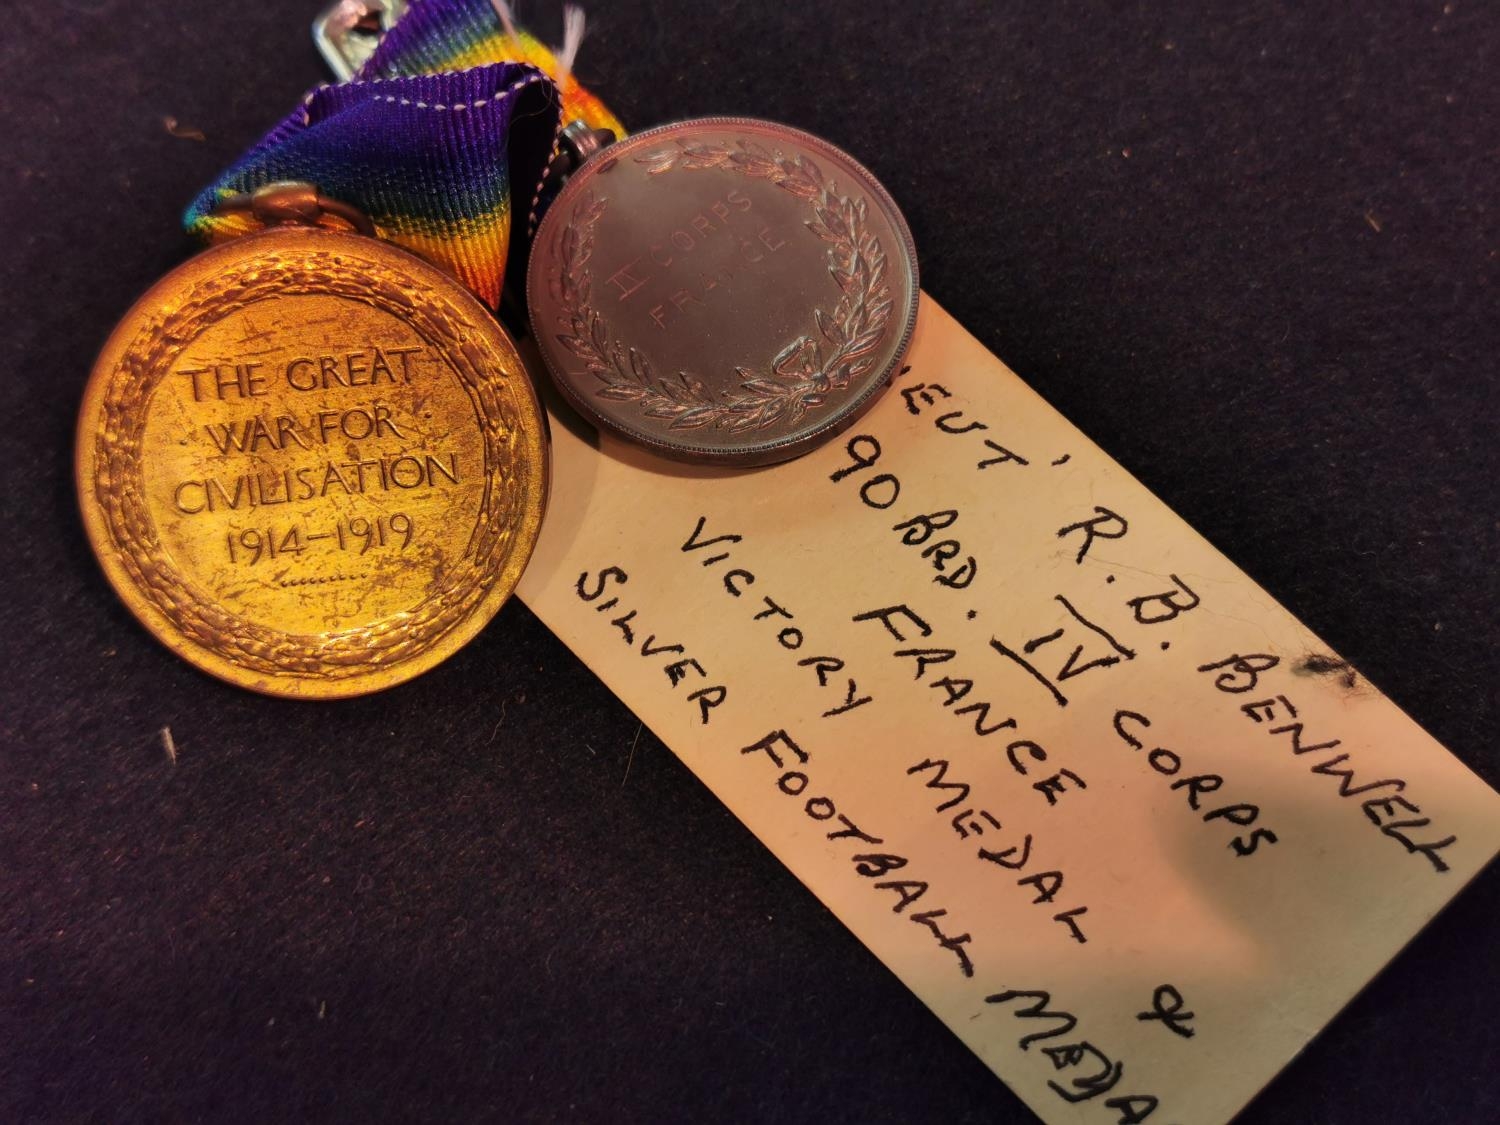 THE GREAT
WAR FOR
CIVILISATION
1914-1919
IV CORPS
FRANCE
EUT' R. B. BENWELL
90 BRD. IV CORPS
FRANCE
VICTORY MEDAL &
SILVER FOOTBALL MEDA